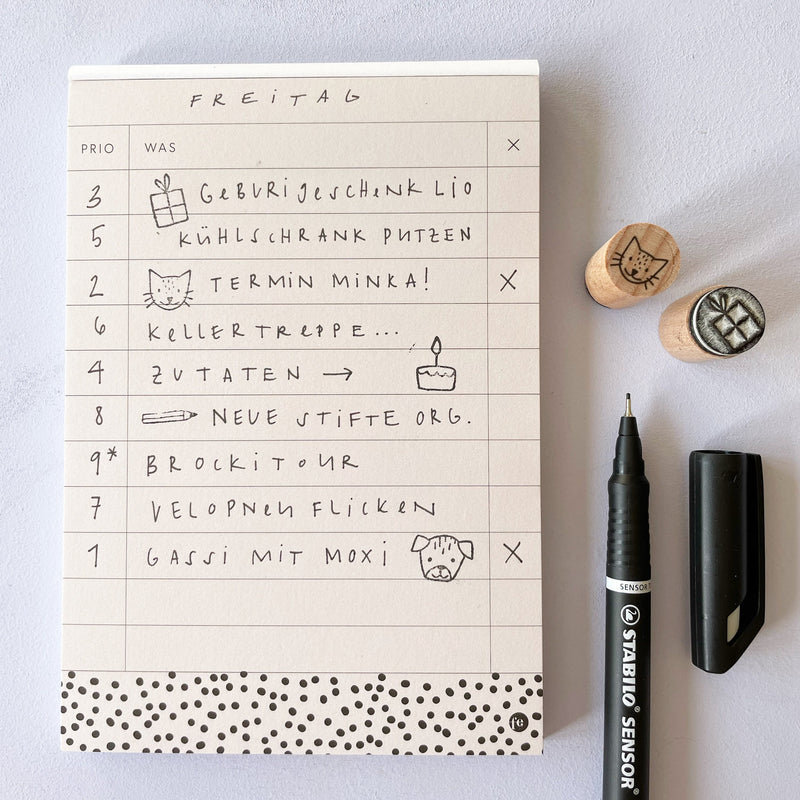 FREiTAG
PRIO WAS ×
3 GeBURiGeSCHeNK LiO
5 KÜHLSCHRANK PUTZEN
2 TERMiN MiNKA! X
6 KeLLERTRePPE...
4 ZUTATEN →
8 NEUE STiFTE ORG.
9* BROCKiTOUR
7 VELOPNeU FLiCKEN
1 GASSi MiT MOXi X
fe
SENSOR
STABILO® SENSOR®